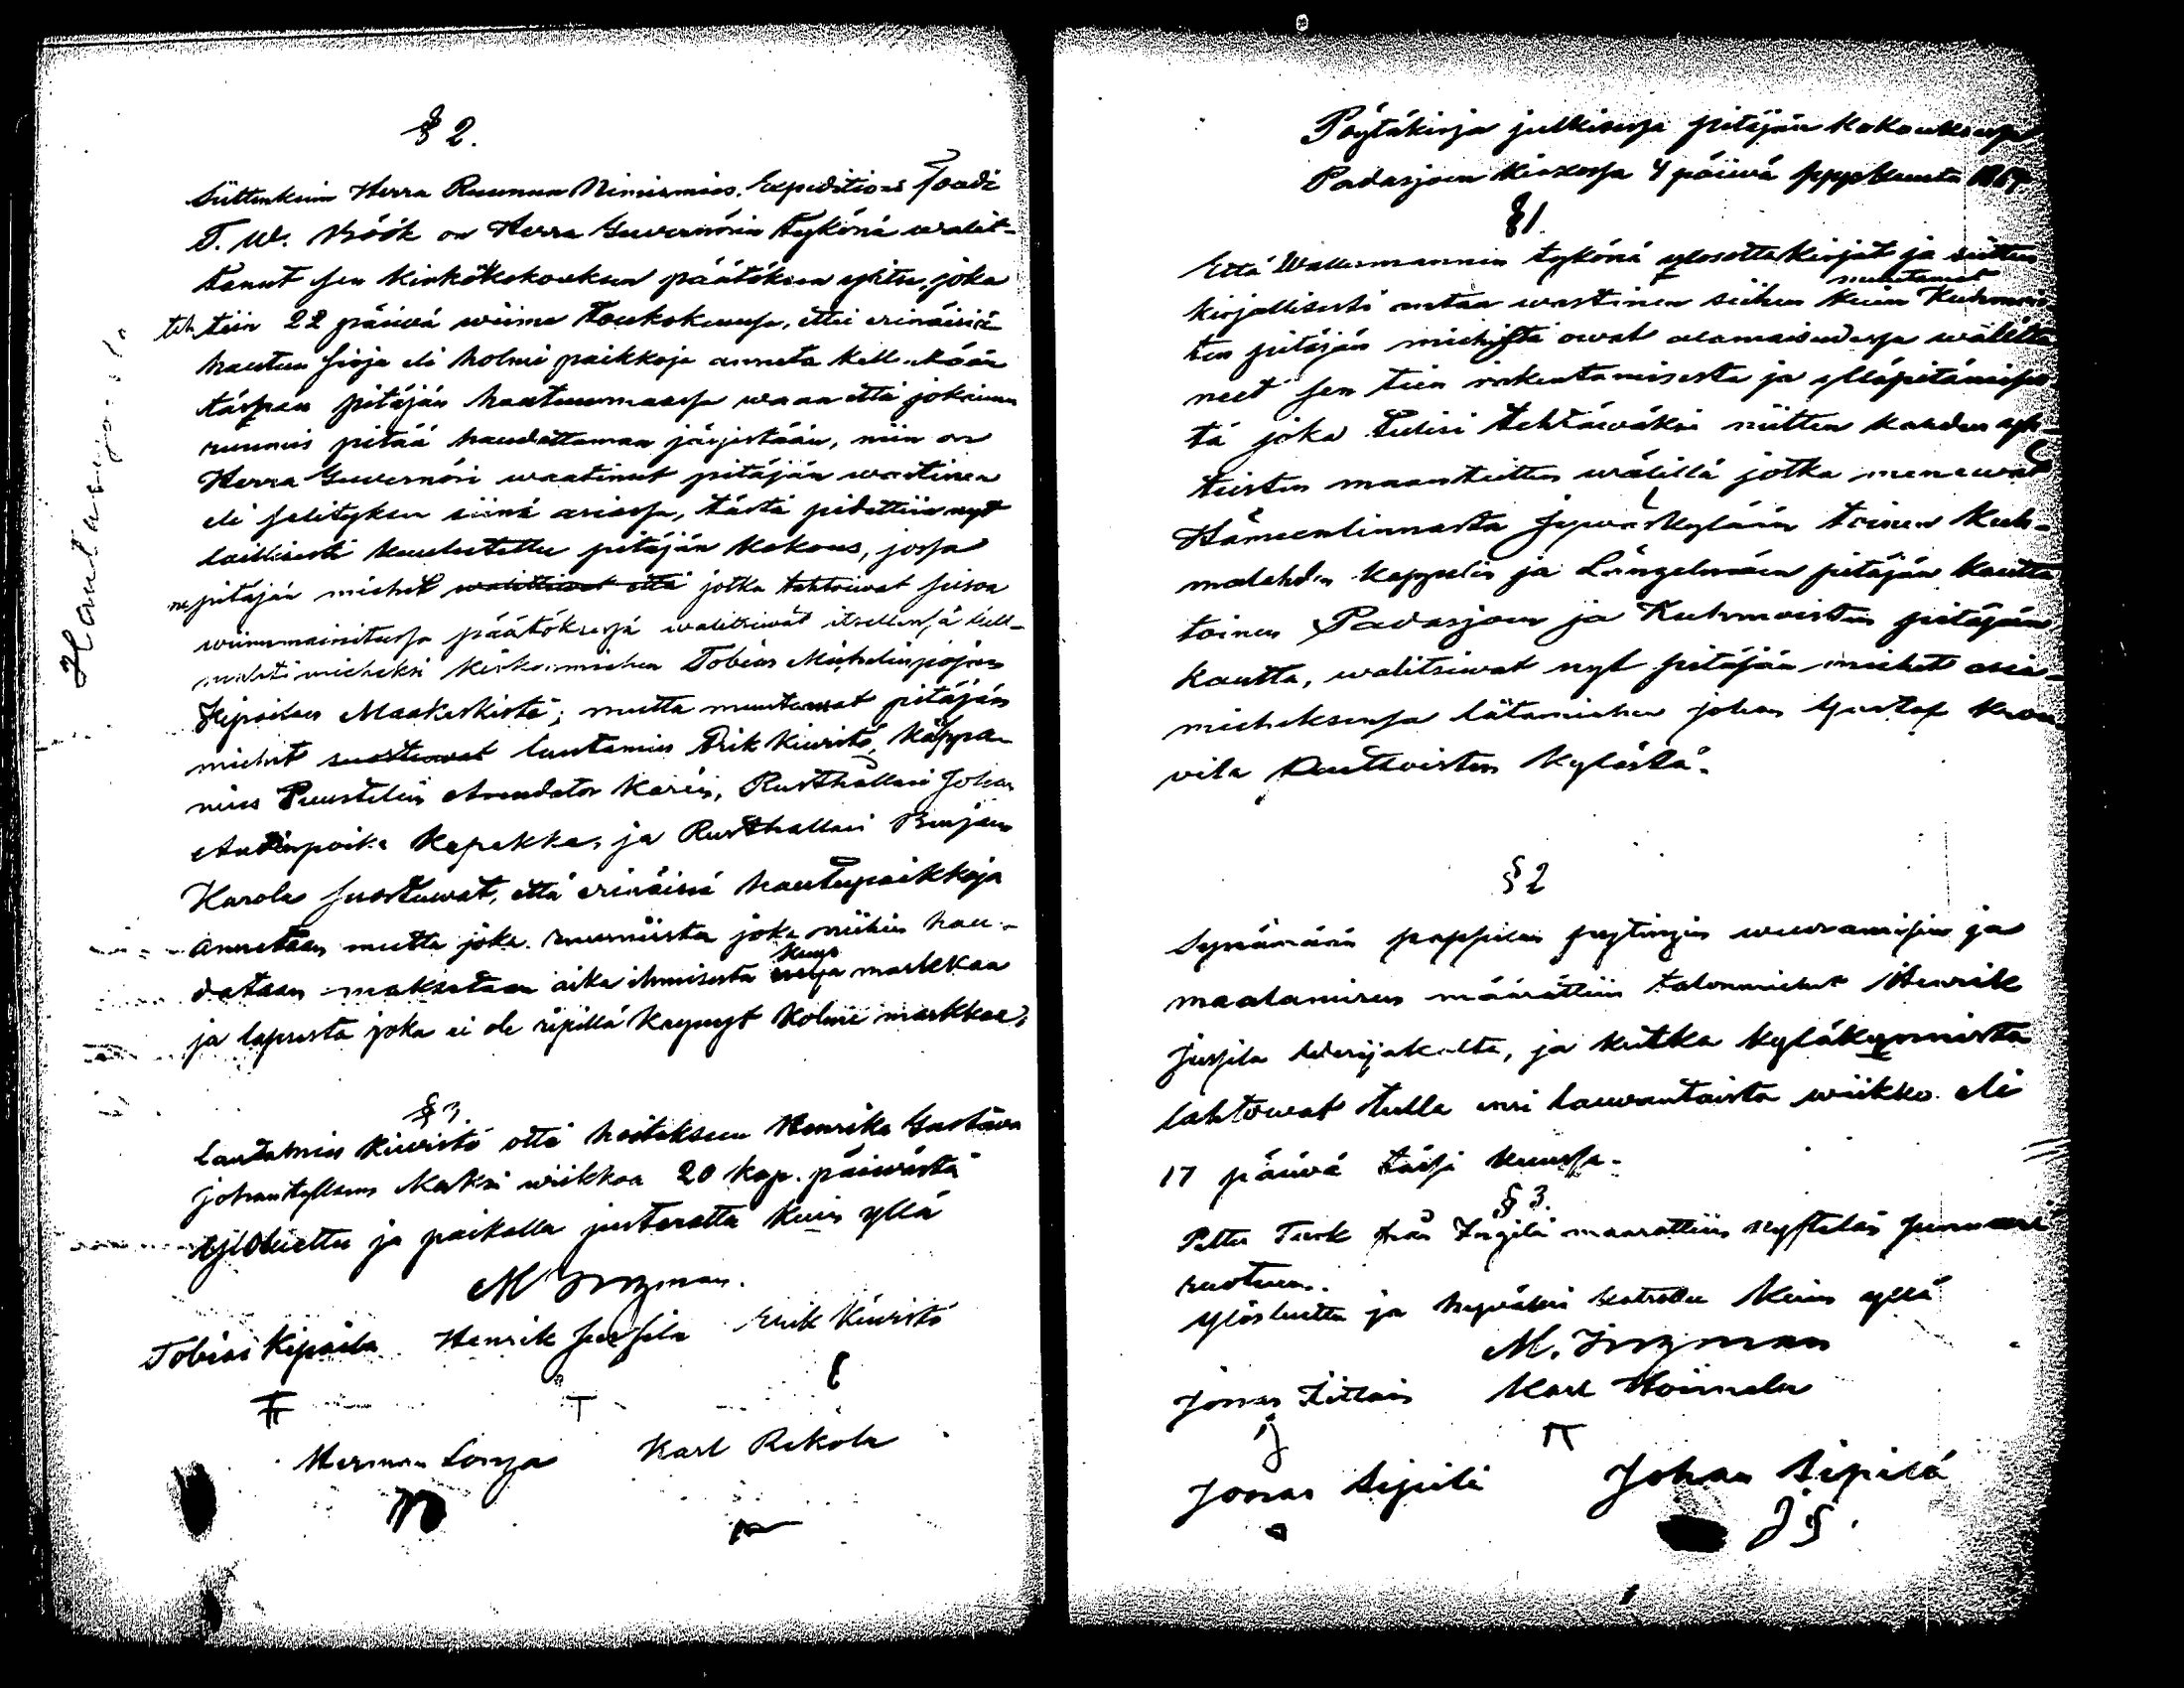 § 2.
Siittenkuin Herra Ruunun Nimismies, Expeditions Foudi
T. W. Böök on Herra Guvernörin tykönä walit-
tanut sen kirkokokouksen päätöksen ylitse, joka
teh tiin 22 päiwä wiime Toukokuussa, ettei erinäisiä
hautun sioja eli holmi paikkoja anneta kellekään
tässän pitäjän hautuumaassa waan että jokainen
ruumis pitää haudattaman järjestään, niin on
Herra Guvernöri waatinut pitäjän wastinen
eli selityksen siinä asiassa, tästä pidettiin nyt
laillisesti kuulutettu pitäjän kokous, jossa
ne pitäjän miehet walittiwat että jotka tahtoiwat seisoa
wiimemainitussa päätöksessä walitsiwat itsellensä
mieheksi kirkonmiehen Tobias Michelinpojan
Kipailan Maakeskistä; mutta muutamat pitäjän
miehet suostuwat lautamies Erik Kiwistö, Käppa-
mies Puustelin Arendator Karén, Rusthollari Johan
Antinpoika Kapakka, ja Rusthollari Benjam
Harola suostuwat, että erinäisiä hautupaikkoja
annetaan mutta joka ruumiista joka niihin hau-
dataan maksetaan aika ihmisestä
kuus
markkaa
ja lapsesta joka ei ole ripillä käynyt kolme markkaa;
§ 3.
Lautamies Kiwistö otti hoitaksen Henrika Gustava
Johantyttären kaksi wiikkoa 20 kop. päiwästä
Ylösluettu ja paikalla justeratta kuin yllä
M Ingman.
Tobias Kipaila Henrik Jussila Erik Kiwistö
Herman Lonza Karl Rekola
Hautasijoista
Pöytäkirja julkisessa pitäjän kokouksessa
Padasjoen Kirkossa 4 päiwä syyskuuta 1864
§ 1.
Että Wallesmannin tykönä ylösottakirjat ja siitten
kirjallisesti antaa wastinen siihen kuin
muutamat
Kuhmois
ten pitäjän miehistä owat alamaisudessa wälittä
neet sen tien rakentamisesta ja ylläpitämises
tä joka tulisi tehtäwäksi niitten kahden yh-
teisten maanteitten wälillä jotka menewat
Hämeenlinnasta Jywäskylään toinen Kuh-
malahden kappelin ja Längelmäen pitäjän kautta
toinen Padasjoen ja Kuhmoisten pitäjän
kautta, walitsiwat nyt pitäjän miehet asia-
mieheksensä lätamiehen Johan Gustaf
wila Kylästä.
§ 2
Synämään pappilan pytingin wuoraamisen ja
maalamisen määrättiin talonmiehet Henrik
Jussila Werijakalta, ja kutka kyläkunnista
lahtowat tulla ensi lauwantaista wiikko eli
17 päiwä tässä kuussa.
§ 3.
Petter Tuok määrättiin
ruotuun.
Ylösluettu ja hywäksi katsottu kuin yllä
M. Ingman
Jonas Kittain Karl Hoimala
Jonas Sipilä Johan Sipilä
JS.